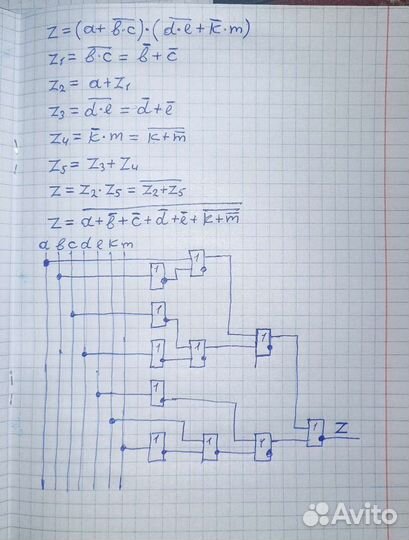 z = (a + \overline{в·c})·(\overline{d·e} + \overline{k}·m)
z₁ = \overline{в·c} = \overline{в} + \overline{c}
z₂ = a + z₁
z₃ = \overline{d·e} = \overline{d} + \overline{e}
z₄ = \overline{k}·m = \overline{k + \overline{m}}
z₅ = z₃ + z₄
z = z₂·z₅ = \overline{\overline{z₂} + \overline{z₅}}
z = \overline{\overline{a + \overline{в} + \overline{c}} + \overline{\overline{d} + \overline{e} + \overline{k + \overline{m}}}}
a в c d e k m
1
1
1
1
1
1
1
1
1
1
1 z
Avito